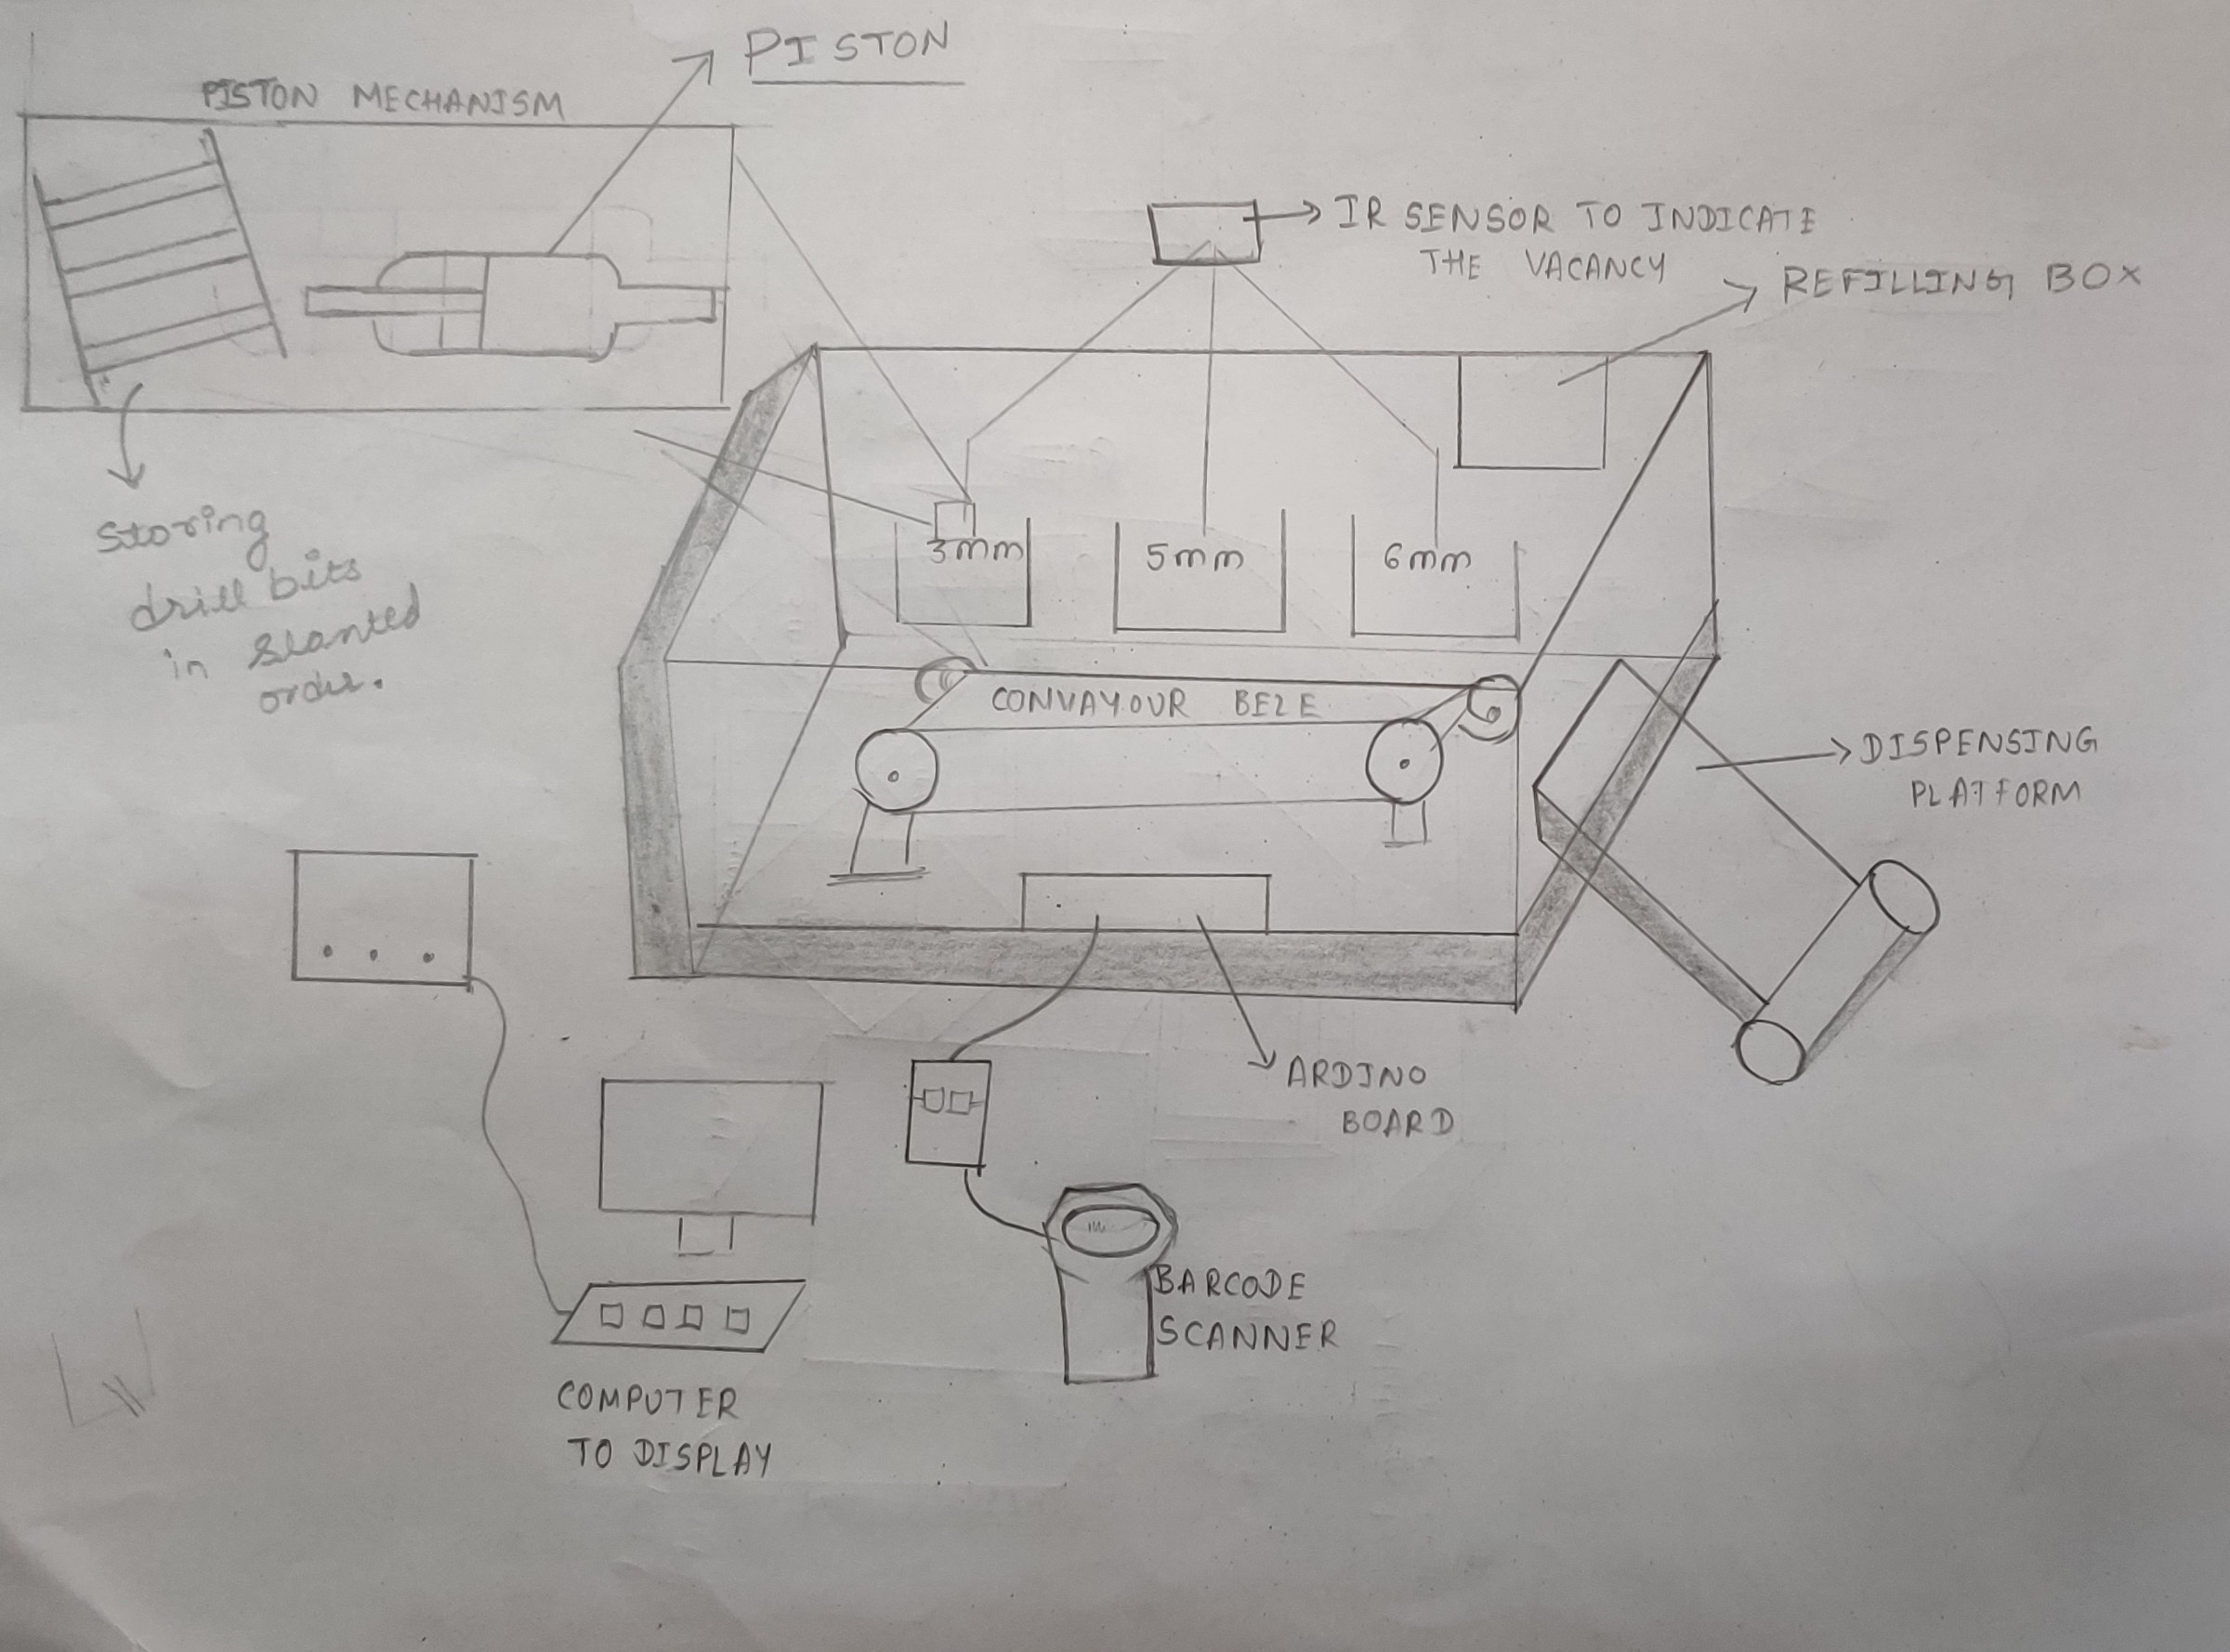 PISTON
PISTON MECHANISM
IR SENSOR TO INDICATE
THE VACANCY
REFILLING BOX
3mm
5mm
6mm
Storing
drill bits
in slanted
order.
CONVAYOUR BELE
DISPENSING
PLATFORM
ARDINO
BOARD
BARCODE
SCANNER
COMPUTER
TO DISPLAY